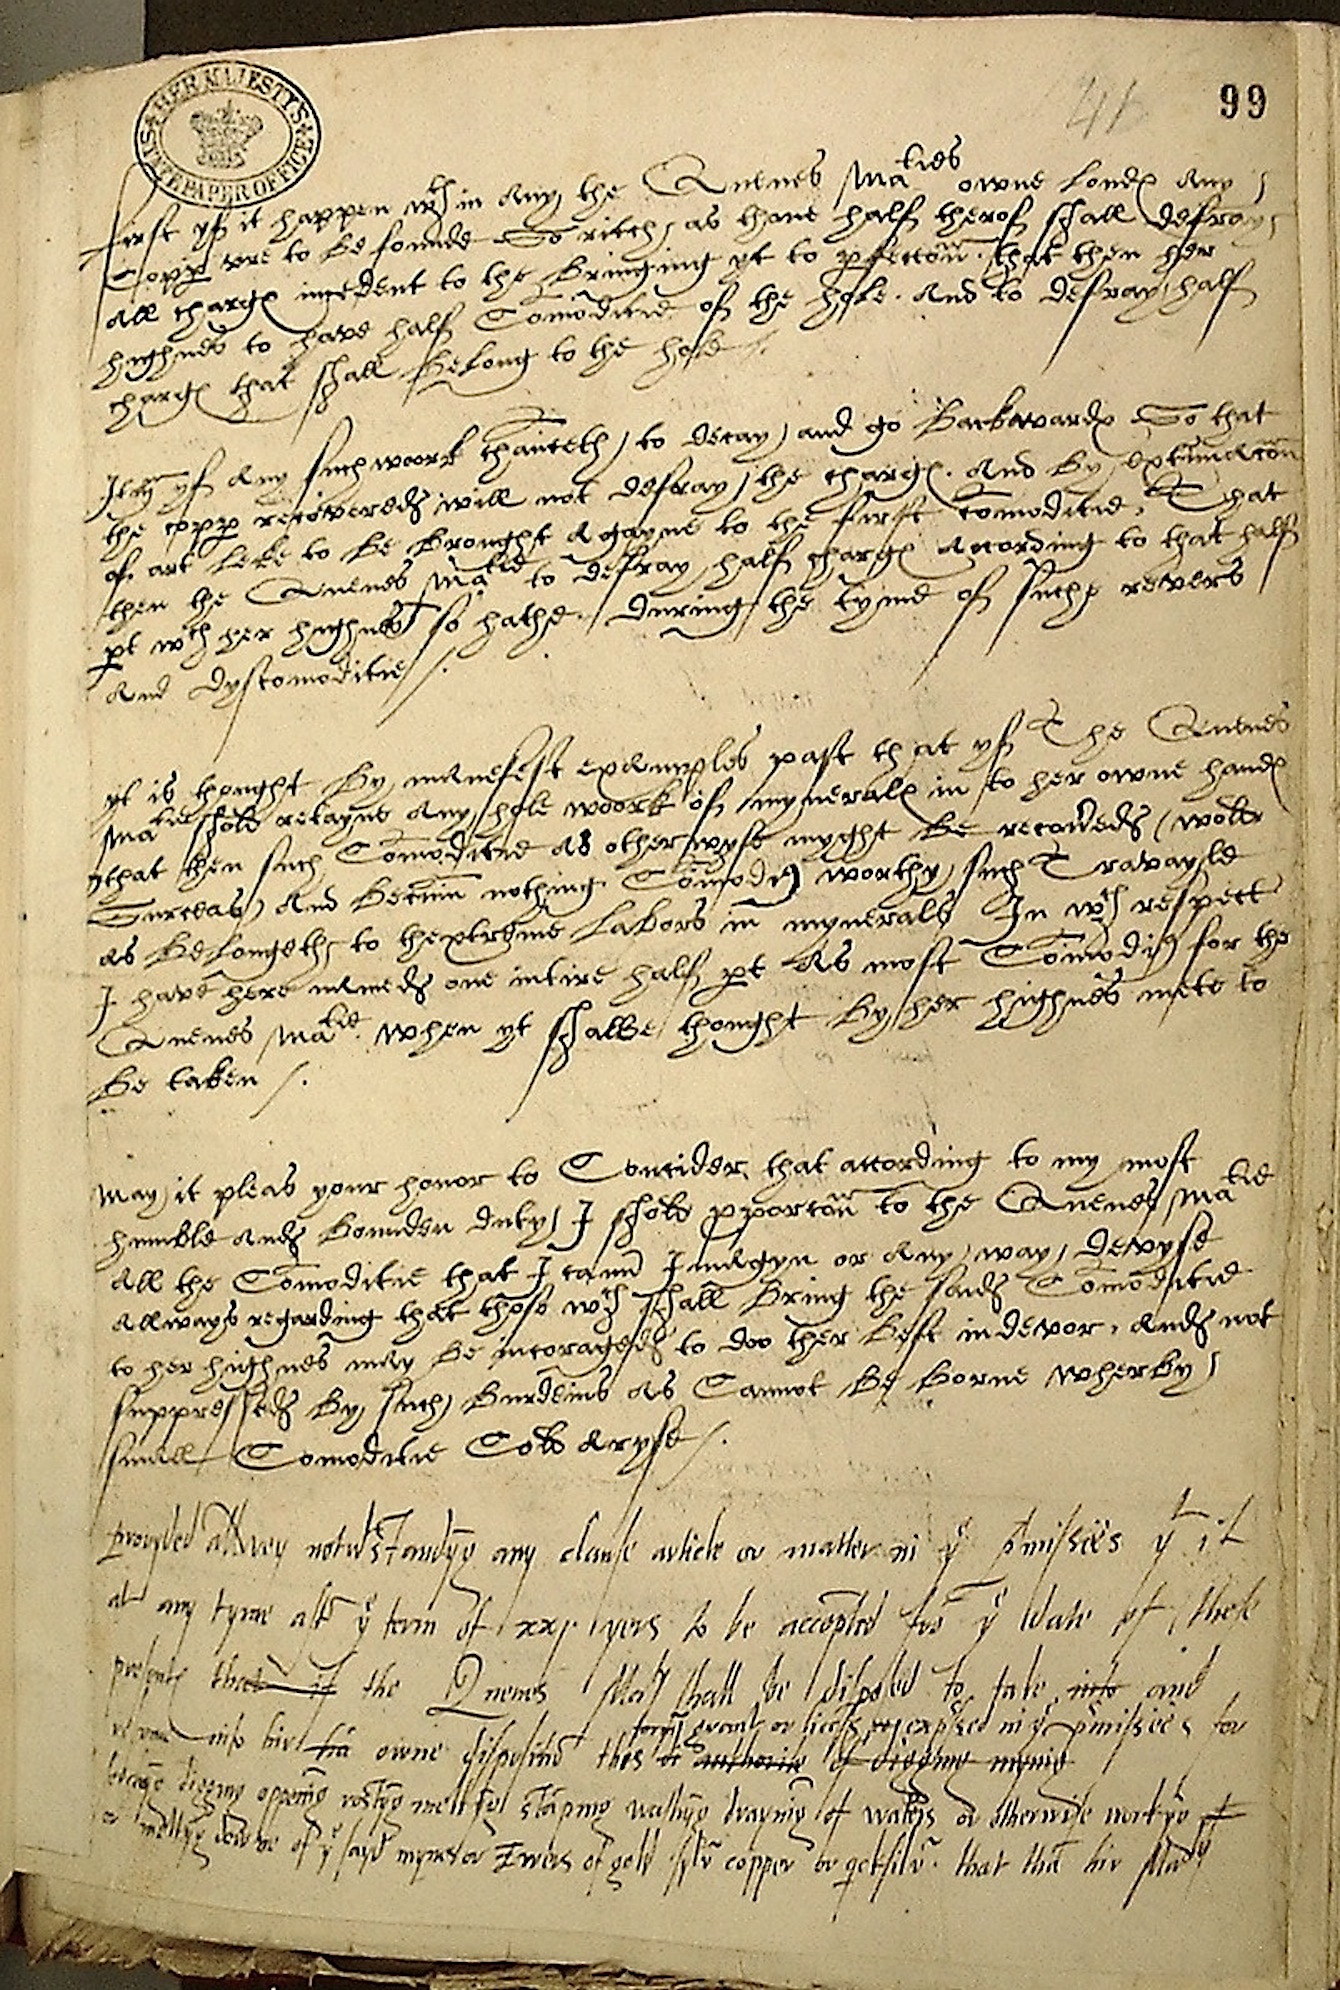 HER MAIESTY'S STATE PAPER OFFICE
41
99
First yf it happen wth in Any the Quenes Maties owne londs Any
Copp vre to be founde So ritch as thone half therof shall defray
All chargs incedent to the bringing yt to pfectōn. that then her
highnes to have half Comoditie of the hole. And to defray half
chargs that shall belong to the hole /.
Itm yf Any such woork chanceth to decay and go backwards So that
the copp recovered will not defray the chargs. And by extimacōn
of art leke to be brought Agayne to the first comoditie. That
then the Quenes Matie to defray half chargs Acording to that half
pt wch her highnes so hathe. During the tyme of such revers
And dyscomoditie /.
yt is thought by manefest examples past that yf The Quenes
Matie shold retayne Any hole woork of mynerals in to her owne hands
that then such Comoditie As other wyse myght be recoved wold
Surceas And becum nothing Comodi9 worthy such Travayle
as belongeth to thextreme labors in mynerals In wch respect
I have here named one intire half pt As most Comodi9 for the
Quenes Matie. when yt shalbe thought by her highnes mete to
be taken /.
May it pleas your honor to Concider that according to my most
humble And bounden duty I shold pportōn to the Quenes Matie
All the Comoditie that I cann Imagyn or Any way devyse
Allways regarding that those wch shall bring the said Comoditie
to her highnes may be incoraged to doo ther best indevor. And not
suppressed by such burdeins As Cannot be borne wherby
small Comoditie Cold Aryse /.
provyded allwey notwtstandyng any clause article or matter in ye pmisses yt if
at any tyme aft ye term of xxj yers to be accōpted frō ye date of these
presents that if the Quenes Maty shall be disposed to take into and
into hir hā owne disposiciō thes or authorite of digging myning
grant or expssed in ye pmisses for
digging oppening rostyng meltyng stāping washyng drayning of waters or otherwise workyng
or meltyng downe of ye sayd mynes or Ewers of gold sylvr copper or qcksilvr. that thā hir Maty